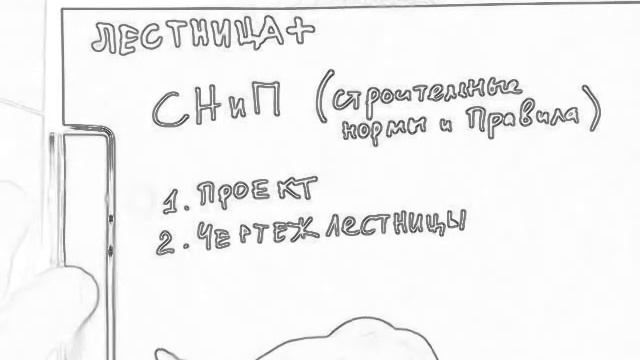 ЛЕСТНИЦА+
СНиП (строительные
нормы и Правила)
1. ПРОЕКТ
2. ЧЕРТЕЖ ЛЕСТНИЦЫ